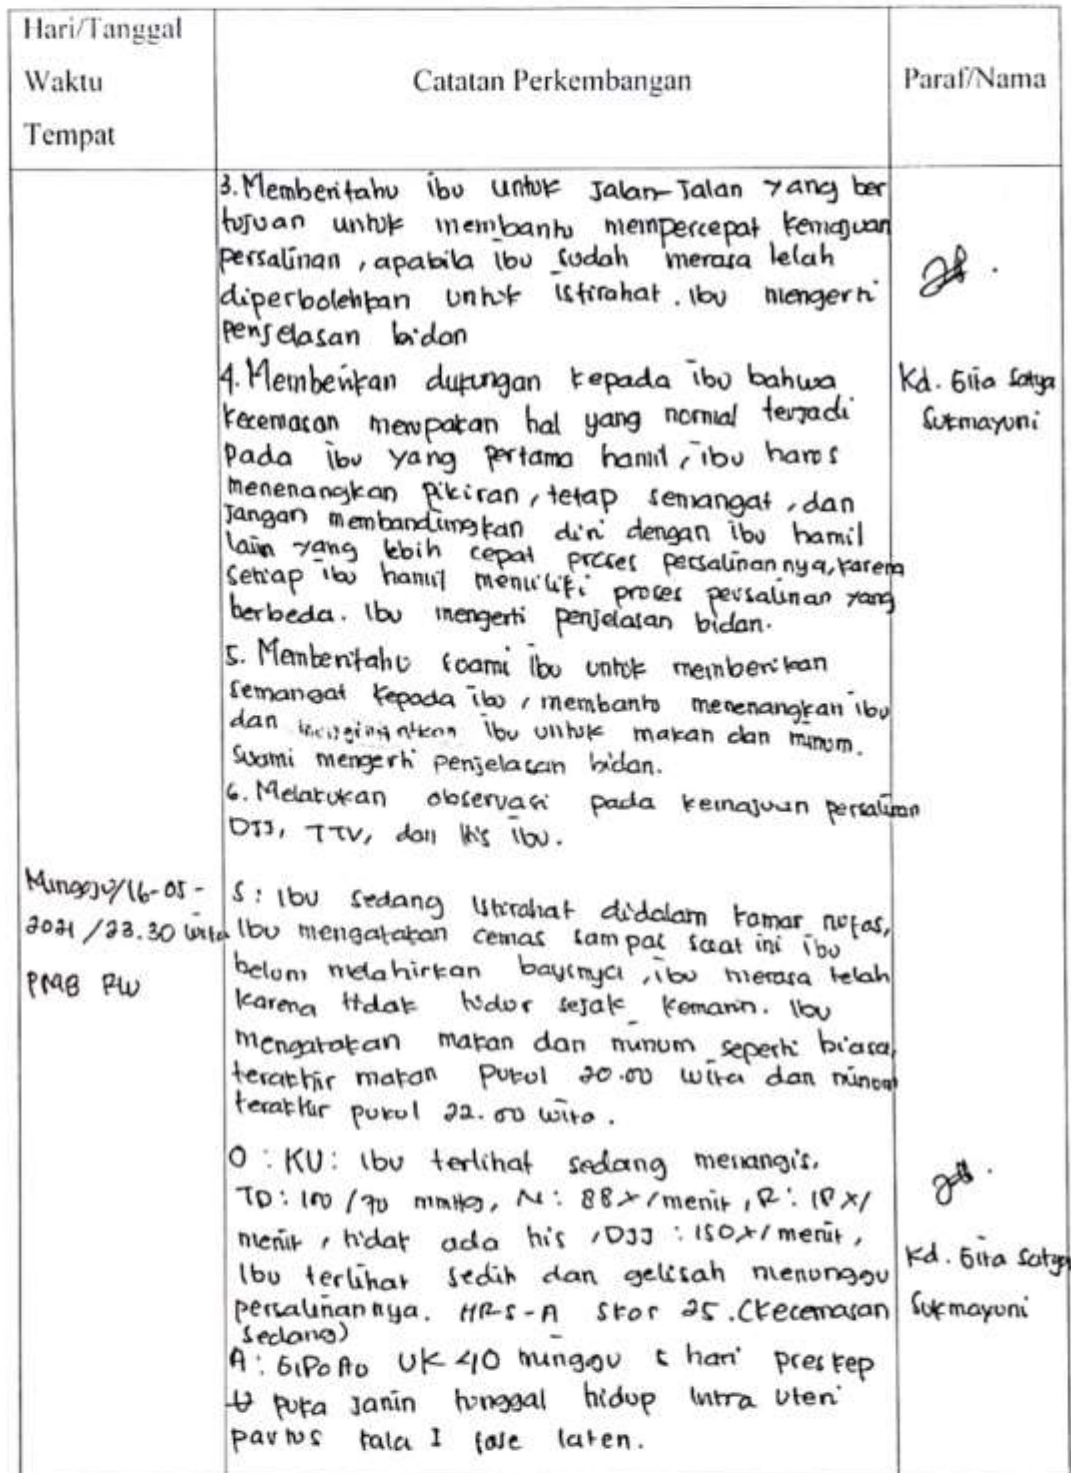 Hari/Tanggal
Waktu
Tempat
Catatan Perkembangan
Paraf/Nama
3. Memberitahu ibu untuk Jalan-Jalan yang ber
tujuan untuk membantu mempercepat kemajuan
persalinan, apabila ibu sudah merasa lelah
diperbolehkan untuk istirahat. Ibu mengerti
penjelasan bidan
4. Memberikan dukungan kepada ibu bahwa
kecemasan merupakan hal yang normal terjadi
pada ibu yang pertama hamil, ibu harus
menenangkan pikiran, tetap semangat, dan
jangan membandingkan diri dengan ibu hamil
lain yang lebih cepat proses persalinannya, karena
setiap ibu hamil memiliki proses persalinan yang
berbeda. Ibu mengerti penjelasan bidan.
Kd. Gita Satya
Sukmayuni
5. Memberitahu suami ibu untuk memberikan
semangat kepada ibu, membantu menenangkan ibu
dan mengingatkan ibu untuk makan dan minum.
Suami mengerti penjelasan bidan.
6. Melakukan observasi pada kemajuan persalinan
DJJ, TTV, dan his ibu.
Minggu/16-05-
2021/23.30 wita
PMB RW
S: Ibu sedang istirahat didalam kamar nifas,
Ibu mengatakan cemas sampai saat ini ibu
belum melahirkan bayinya, ibu merasa lelah
karena tidak tidur sejak kemarin. Ibu
mengatakan makan dan minum seperti biasa,
terakhir makan pukul 20.00 wita dan minum
terakhir pukul 22.00 wita.
O: KU: Ibu terlihat sedang menangis.
TD: 100/70 mmHg, N: 88x/menit, R: 18x/
menit, tidak ada his, DJJ: 150x/menit,
Ibu terlihat sedih dan gelisah menunggu
persalinannya. HRS-A Skor 25. (Kecemasan
sedang)
A: G1P0A0 UK 40 minggu hari preskep
U puka janin tunggal hidup intra uteri
partus kala I fase laten.
Kd. Gita Satya
Sukmayuni